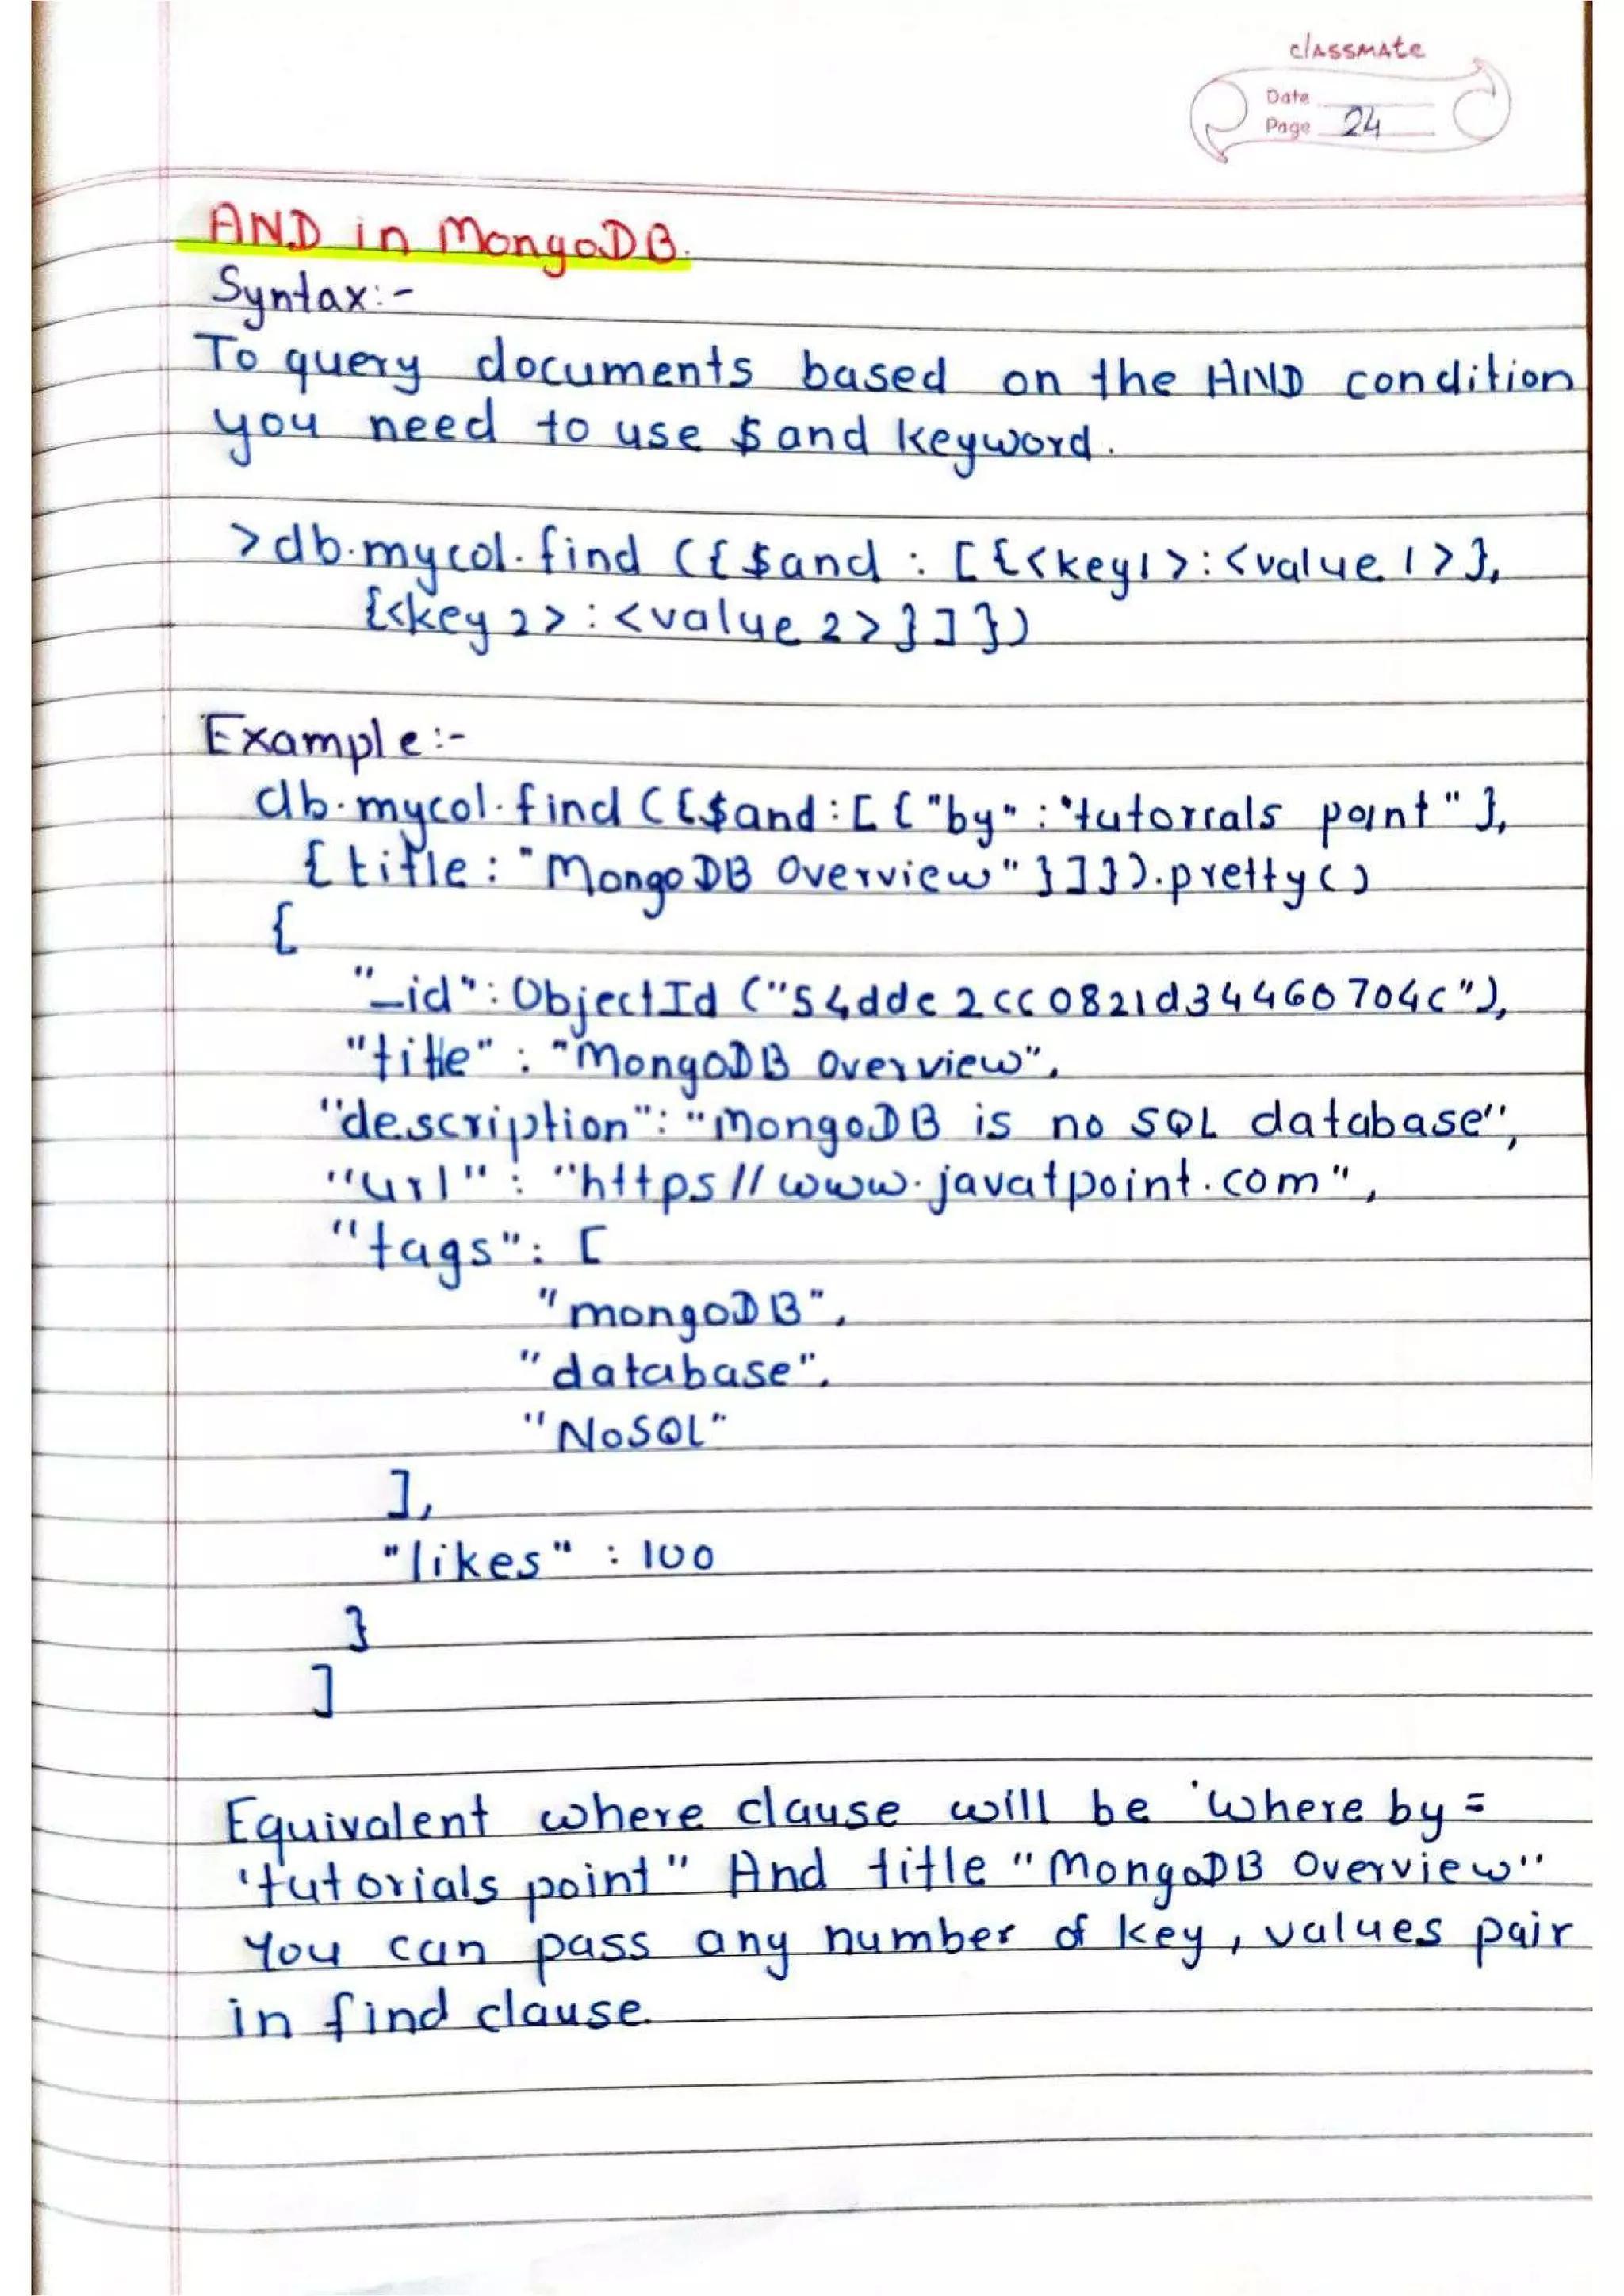 classmate
Date
Page 24
AND in MongoDB.
Syntax:-
To query documents based on the AND condition
you need to use $and keyword.
>db.mycol.find ({$and : [{<key1>:<value1>},
{<key2>:<value2>}]})
Example:-
db.mycol.find ({$and:[{"by":"tutorials point"},
{title: "MongoDB Overview"}]}).pretty()
{
"_id": ObjectId ("54ddc2cc0821d34460704c"),
"title" : "MongoDB Overview",
"description": "MongoDB is no SQL database",
"url" : "https//www.javatpoint.com",
"tags": [
"mongoDB",
"database",
"NoSQL"
],
"likes" : 100
}
]
Equivalent where clause will be 'where by =
'tutorials point" And title "MongoDB Overview"
You can pass any number of key, values pair
in find clause.